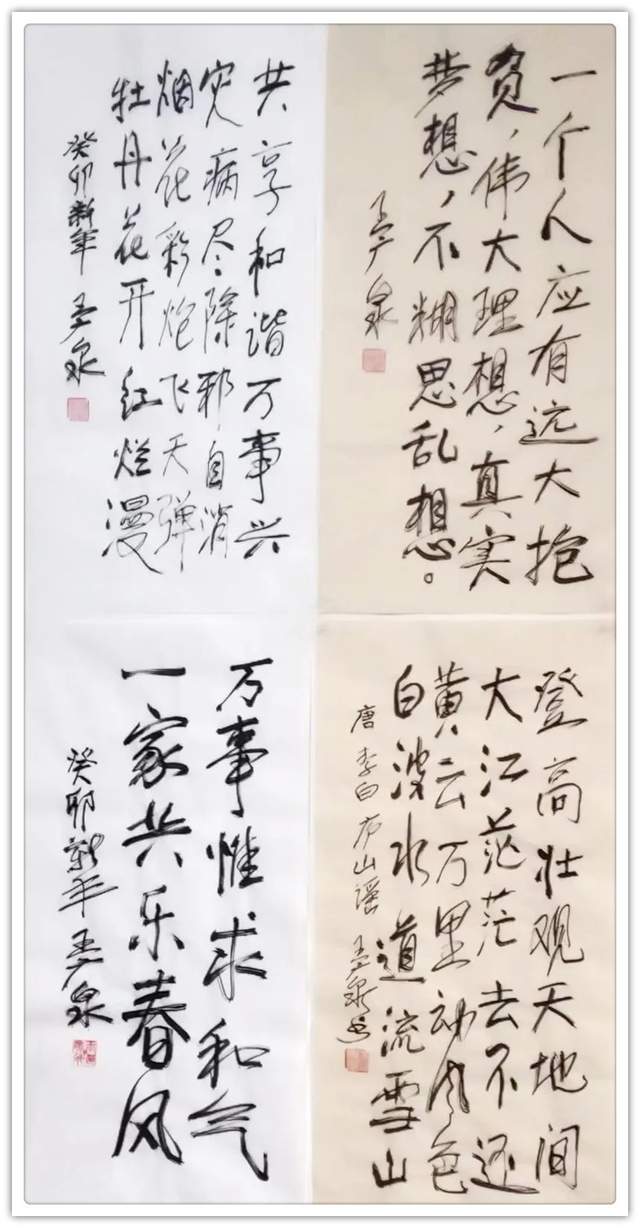 一个人应有远大抱
负，伟大理想，真实
梦想，不糊思乱想。
王广泉
共享和谐万事兴
灾病尽除邪自消
烟花彩炮飞天弹
牡丹花开红烂漫
癸卯新年 王广泉
登高壮观天地间
大江茫茫去不还
黄云万里动风色
白波水道流雪山
唐 李白 庐山谣 王广泉书
万事惟求和气
一家共乐春风
癸卯新年 王广泉